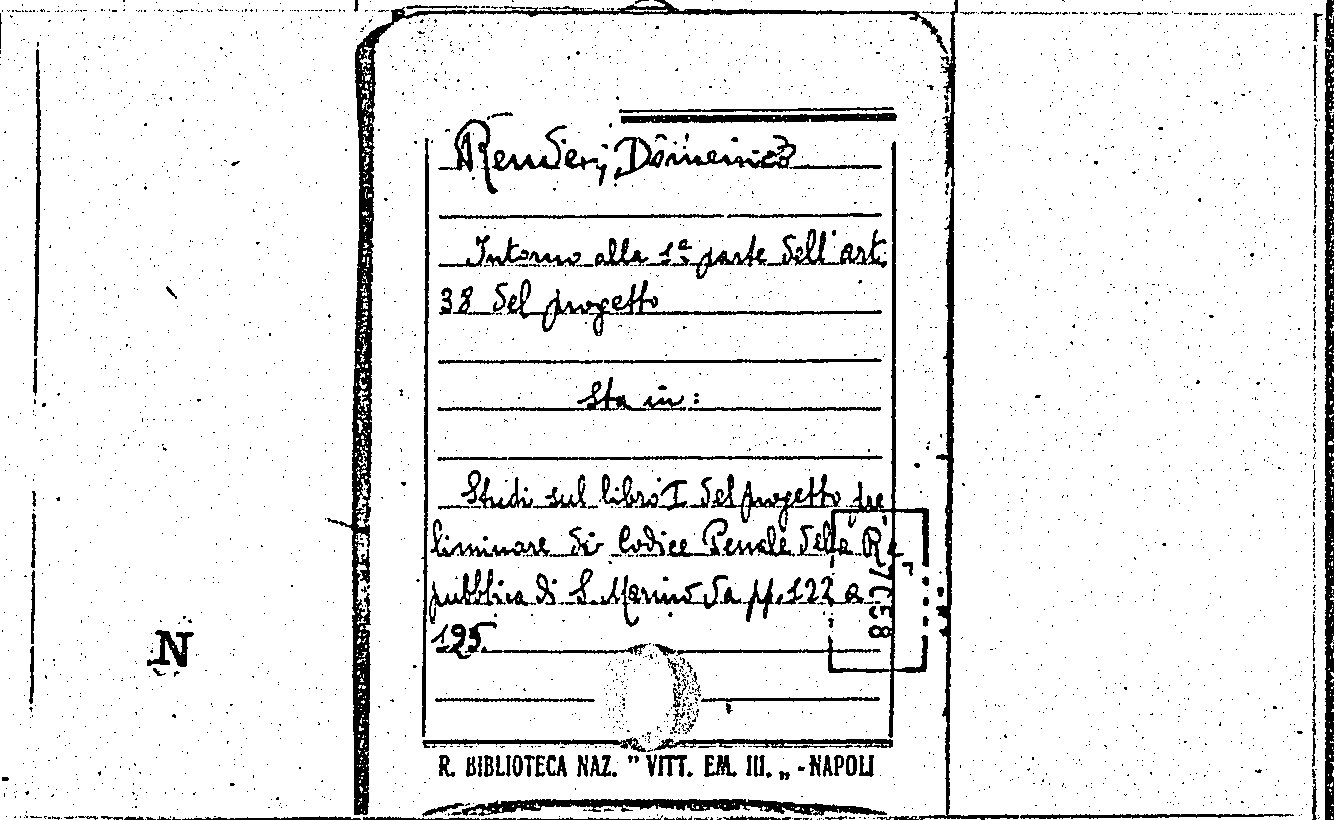 Renderj, Domenico
Intorno alla 1ª parte dell' art.
38 del progetto
Sta in:
Studi sul libro I del progetto pre
liminare di Codice Penale della Re
pubblica di S. Marino da pp. 122 a
125.
N
R. BIBLIOTECA NAZ. " VITT. EM. III. „ - NAPOLI